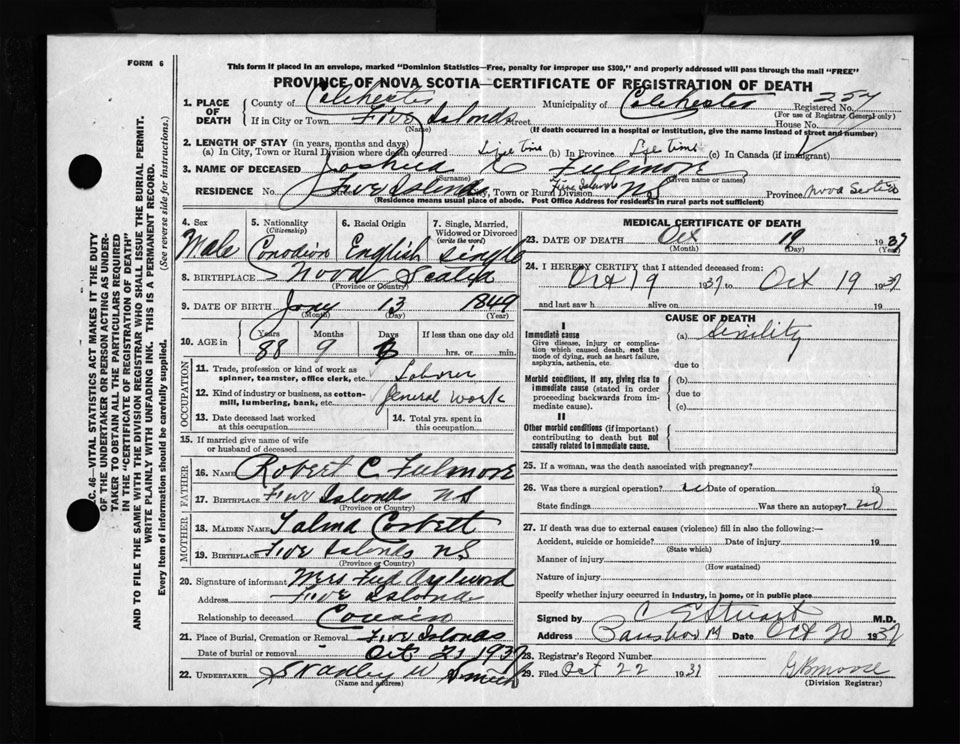 FORM 6
This form if placed in an envelope, marked "Dominion Statistics—Free, penalty for improper use $300," and properly addressed will pass through the mail "FREE"
PROVINCE OF NOVA SCOTIA—CERTIFICATE OF REGISTRATION OF DEATH
1. PLACE OF DEATH
County of Colchester Municipality of Colchester Registered No. 257
(For use of Registrar General only)
If in City or Town Five Islands Street House No.
(Name) (If death occurred in a hospital or institution, give the name instead of street and number)
2. LENGTH OF STAY (in years, months and days)
(a) In City, Town or Rural Division where death occurred Life time (b) In Province Life time (c) In Canada (if immigrant)
3. NAME OF DECEASED Joshua C Fulmore
(Surname) (Given name or names)
RESIDENCE No. Street Five Islands, Town or Rural Division Five Islands NS Province Nova Scotia
(Residence means usual place of abode. Post Office Address for residents in rural parts not sufficient)
4. Sex Male
5. Nationality (Citizenship) Canadian
6. Racial Origin English
7. Single, Married, Widowed or Divorced (write the word) Single
8. BIRTHPLACE Nova Scotia
(Province or Country)
9. DATE OF BIRTH Jany 13 1849
(Month) (Day) (Year)
10. AGE in Years Months Days If less than one day old
88 9 hrs. or min.
OCCUPATION
11. Trade, profession or kind of work as spinner, teamster, office clerk, etc. Laborer
12. Kind of industry or business, as cotton-mill, lumbering, bank, etc. General Work
13. Date deceased last worked at this occupation
14. Total yrs. spent in this occupation
15. If married give name of wife or husband of deceased
FATHER
16. NAME Robert C Fulmore
17. BIRTHPLACE Five Islands NS
(Province or Country)
MOTHER
18. MAIDEN NAME Corbett
19. BIRTHPLACE Five Islands NS
(Province or Country)
20. Signature of informant Mrs Fred Aylward
Address Five Islands
Relationship to deceased Cousin
21. Place of Burial, Cremation or Removal Five Islands
Date of burial or removal Oct 21 1937
22. UNDERTAKER W Smith
(Name and address)
MEDICAL CERTIFICATE OF DEATH
23. DATE OF DEATH Oct 19 1937
(Month) (Day) (Year)
24. I HEREBY CERTIFY that I attended deceased from:
Oct 19 1937 to Oct 19 1937
and last saw h alive on 19
CAUSE OF DEATH
I
Immediate cause
Give disease, injury or complication which caused death, not the mode of dying, such as heart failure, asphyxia, asthenia, etc.
(a) Senility
due to
Morbid conditions, if any, giving rise to immediate cause (stated in order proceeding backwards from immediate cause).
(b)
due to
(c)
II
Other morbid conditions (if important) contributing to death but not causally related to immediate cause.
25. If a woman, was the death associated with pregnancy?
26. Was there a surgical operation? no Date of operation 19
State findings Was there an autopsy? no
27. If death was due to external causes (violence) fill in also the following:—
Accident, suicide or homicide? Date of injury 19
(State which)
Manner of injury
(How sustained)
Nature of injury
Specify whether injury occurred in industry, in home, or in public place
Signed by C E Stuart M.D.
Address Parrsboro Date Oct 20 1937
28. Registrar's Record Number
29. Filed Oct 22 1937 Moore
(Division Registrar)
C. 46—VITAL STATISTICS ACT MAKES IT THE DUTY
OF THE UNDERTAKER OR PERSON ACTING AS UNDER-
TAKER TO OBTAIN ALL THE PARTICULARS REQUIRED
IN THE "CERTIFICATE OF REGISTRATION OF DEATH"
AND TO FILE THE SAME WITH THE DIVISION REGISTRAR WHO SHALL ISSUE THE BURIAL PERMIT.
WRITE PLAINLY WITH UNFADING INK. THIS IS A PERMANENT RECORD.
Every item of information should be carefully supplied. (See reverse side for instructions.)